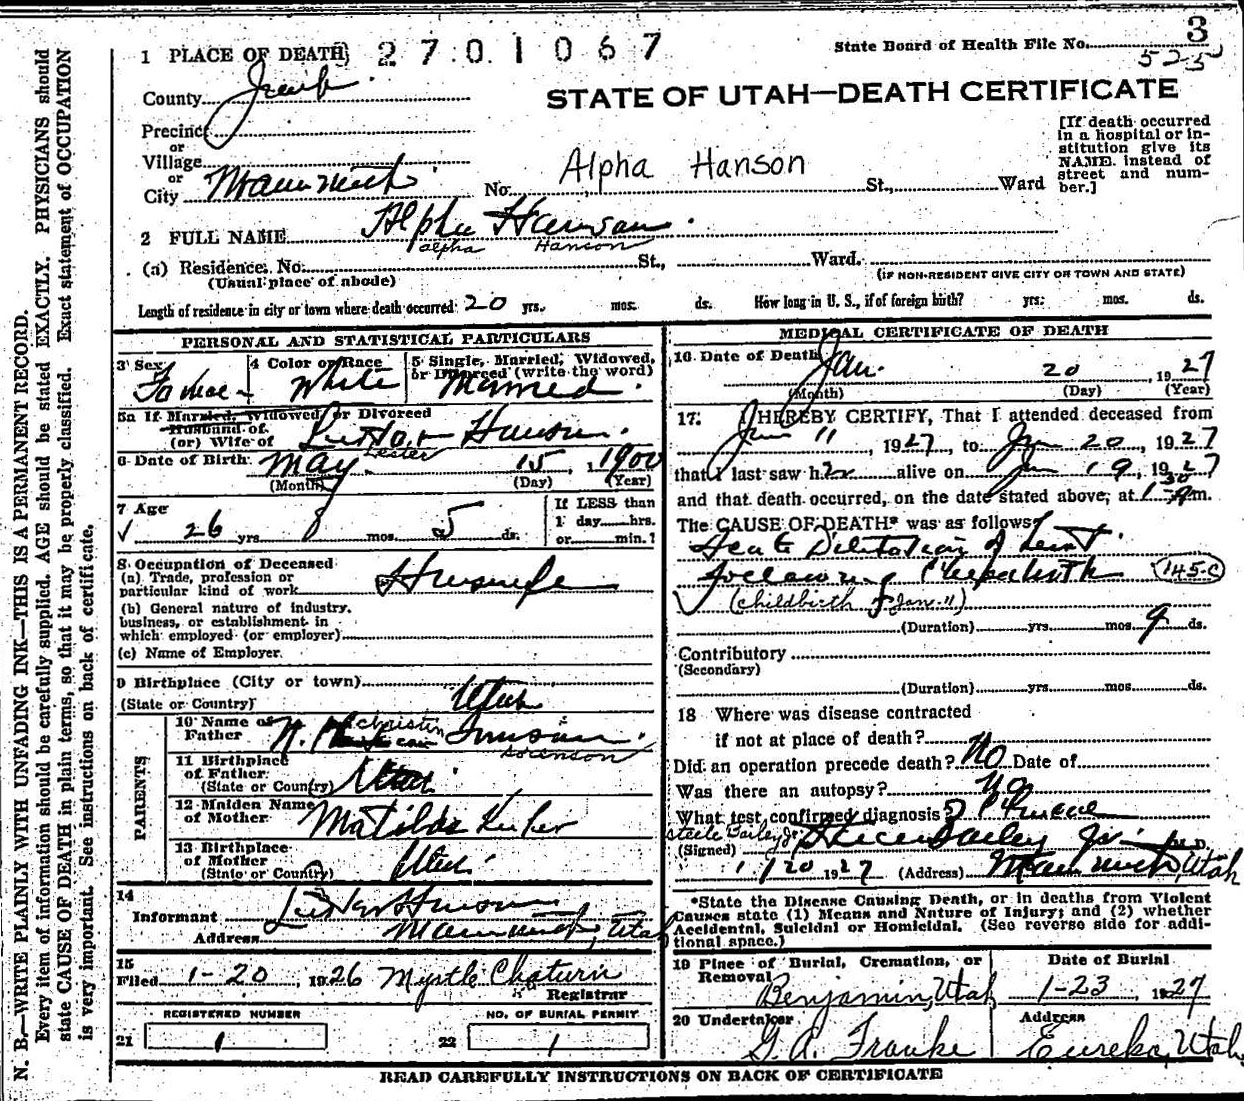 3
1 PLACE OF DEATH 2701067 State Board of Health File No. 525
County Juab
STATE OF UTAH—DEATH CERTIFICATE
Precinct
or
Village
or
City Mammoth No. Alpha Hanson St., Ward
[If death occurred
in a hospital or in-
stitution give its
NAME. instead of
street and num-
ber.]
2 FULL NAME Alpha Hanson
alpha Hanson
(a) Residence. No. St., Ward.
(Usual place of abode) (IF NON-RESIDENT GIVE CITY OR TOWN AND STATE)
Length of residence in city or town where death occurred 20 yrs. mos. ds. How long in U. S., if of foreign birth? yrs. mos. ds.
PERSONAL AND STATISTICAL PARTICULARS
3 Sex Female
4 Color or Race White
5 Single, Married, Widowed,
or Divorced (write the word)
Married
5a If Married, Widowed, or Divorced
Husband of
(or) Wife of Hanson
Lester
6 Date of Birth May 15, 1900
(Month) (Day) (Year)
7 Age
26 yrs. 8 mos. 5 ds.
If LESS than
1 day hrs.
or min.?
8 Occupation of Deceased
(a) Trade, profession or
particular kind of work Housewife
(b) General nature of industry.
business, or establishment in
which employed (or employer)
(c) Name of Employer.
9 Birthplace (City or town)
(State or Country) Utah
PARENTS
10 Name of
Father N. Christin
Sorenson
11 Birthplace
of Father
(State or Country) Utah
12 Maiden Name
of Mother Matilda
13 Birthplace
of Mother
(State or Country) Utah
14
Informant Hanson
Address Mammoth, Utah
15
Filed 1-20, 1926 Myrtle Chaturin
Registrar
REGISTERED NUMBER
21 1
NO. OF BURIAL PERMIT
22 1
MEDICAL CERTIFICATE OF DEATH
16 Date of Death Jan. 20, 1927
(Month) (Day) (Year)
17. I HEREBY CERTIFY, That I attended deceased from
Jan 11, 1927, to Jan 20, 1927
that I last saw her alive on Jan 19, 1927
and that death occurred, on the date stated above, at 1:30 m.
The CAUSE OF DEATH* was as follows:
Acute Dilitation of heart
following Childbirth 145-c
(childbirth Jan-11)
(Duration) yrs. mos. 9 ds.
Contributory
(Secondary)
(Duration) yrs. mos. ds.
18 Where was disease contracted
if not at place of death?
Did an operation precede death? No Date of
Was there an autopsy? No
What test confirmed diagnosis?
Steele Bailey Jr
(Signed) Steele Bailey Jr. M. D.
1/20 1927 (Address) Mammoth, Utah
*State the Disease Causing Death, or in deaths from Violent
Causes state (1) Means and Nature of Injury; and (2) whether
Accidental, Suicidal or Homicidal. (See reverse side for addi-
tional space.)
19 Place of Burial, Cremation, or
Removal
Benjamin, Utah
Date of Burial
1-23, 1927
20 Undertaker
G. A. Franke
Address
Eureka, Utah
READ CAREFULLY INSTRUCTIONS ON BACK OF CERTIFICATE
N. B.—WRITE PLAINLY WITH UNFADING INK—THIS IS A PERMANENT RECORD.
Every item of information should be carefully supplied. AGE should be stated EXACTLY. PHYSICIANS should
state CAUSE OF DEATH in plain terms, so that it may be properly classified. Exact statement of OCCUPATION
is very important. See instructions on back of certificate.